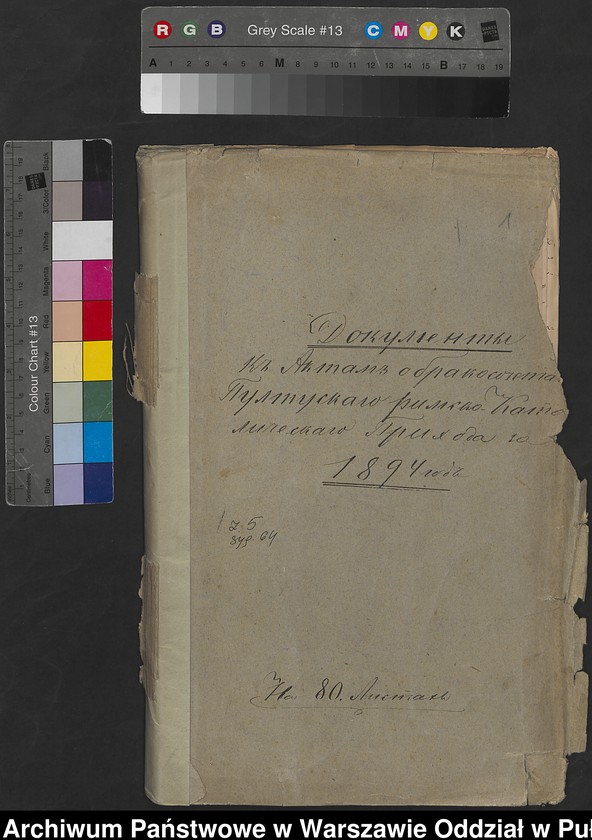 R G B Grey Scale #13 C M Y K
A 1 2 3 4 5 6 M 8 9 10 11 12 13 14 15 B 17 18 19
Colour Chart #13
Blue Cyan Green Yellow Red Magenta White 3/Color Black
1
Документы
Къ Актамъ о бракосочета
Пултускаго римско Като
лическаго Прихода
1894 годъ
5
64
На 80. Листахъ
Archiwum Państwowe w Warszawie Oddział w Puł